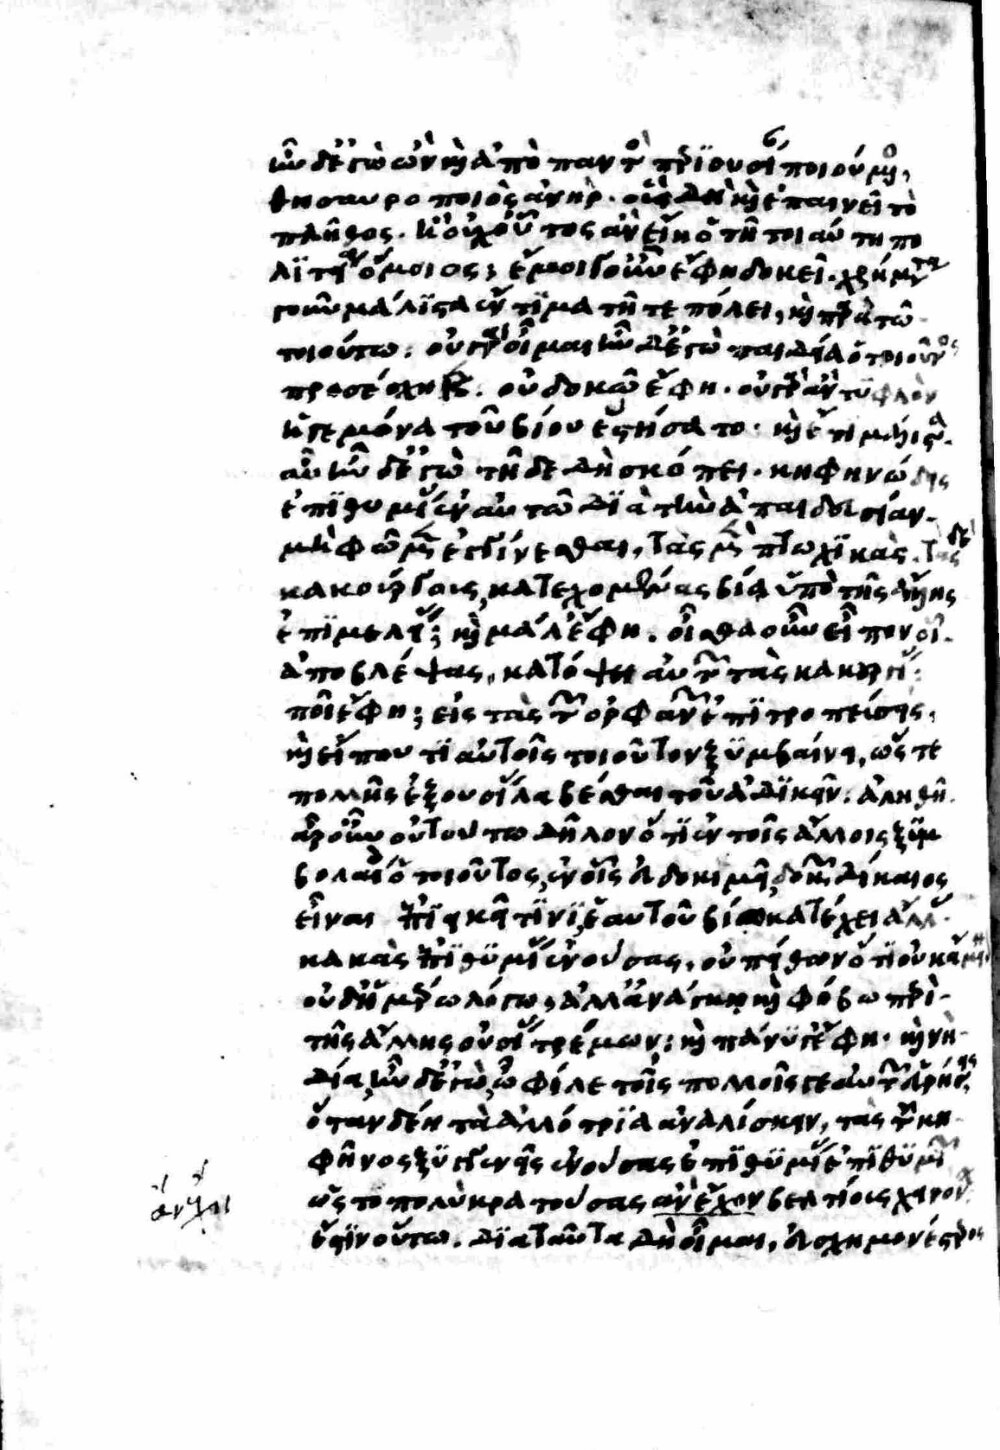 ἦν δ' ἐγὼ ὢν καὶ ἀπὸ παντὸς περιουσίαν ποιούμενος,
θησαυροποιὸς ἀνήρ. οὓς δὴ καὶ ἐπαινεῖ τὸ
πλῆθος. ἢ οὐχ οὗτος ἂν εἴη ὁ τῇ τοιαύτῃ πο
λιτείᾳ ὅμοιος; ἐμοὶ γοῦν ἔφη δοκεῖ. χρήματα
γοῦν μάλιστα ἔντιμα τῇ τε πόλει, καὶ παρὰ τῷ
τοιούτῳ. οὐ γὰρ οἶμαι ἦν δ' ἐγὼ παιδείᾳ ὁ τοιοῦτος
προσέσχηκε. οὐ δοκῶ ἔφη. οὐ γὰρ ἂν τυφλὸν
ἡγεμόνα τοῦ βίου ἐστήσατο. καὶ ἔτι μάλιστα.
εὖ ἦν δ' ἐγώ. τῇδε δὴ σκόπει. κηφηνώδεις
ἐπιθυμίας ἐν αὐτῷ διὰ τὴν ἀπαιδευσίαν
μὴ φῶμεν ἐγγίνεσθαι, τὰς μὲν πτωχικὰς. τὰς δὲ
κακούργους, κατεχομένας βίᾳ ὑπὸ τῆς ἄλλης
ἐπιμελείας; καὶ μάλ' ἔφη. οἶσθα οὖν εἶπον οἷ
ἀποβλέψας, κατόψει αὐτῶν τὰς κακουργίας;
ποῖ ἔφη; εἰς τὰς τῶν ὀρφανῶν ἐπιτροπεύσεις,
καὶ εἴ που τι αὐτοῖς τοιοῦτον ξυμβαίνει, ὥστε
πολλῆς ἐξουσίας λαβέσθαι τοῦ ἀδικεῖν. ἀληθῆ.
ἆρ' οὖν οὐ τούτῳ δῆλον ὅτι ἐν τοῖς ἄλλοις ξυμ
βολαίοις ὁ τοιοῦτος, ἐν οἷς εὐδοκιμεῖ, δοκῶν δίκαιος
εἶναι ἐπιεικεῖ τινὶ ἑαυτοῦ βίᾳ κατέχει ἄλλας
κακὰς ἐπιθυμίας ἐνούσας, οὐ πείθων ὅτι οὐκ ἄμεινον
οὐδ' ἡμερῶν λόγῳ, ἀλλ' ἀνάγκῃ καὶ φόβῳ περὶ
τῆς ἄλλης οὐσίας τρέμων; καὶ πάνυ γ' ἔφη. καὶ νὴ
Δία, ἦν δ' ἐγώ, ὦ φίλε τοῖς πολλοῖς γε αὐτῶν εὑρήσεις,
ὅταν δέῃ τὰ ἀλλότρια ἀναλίσκειν, τὰς τοῦ κη
φῆνος ξυγγενεῖς ἐνούσας ἐπιθυμίας ἐπιθυμιῶν
ὡς τὸ πολὺ κρατούσας ἂν ἔχον βελτίους χειρόνων.
ἔστιν οὕτω. διὰ ταῦτα δὴ οἶμαι, εὐσχημονέστερος